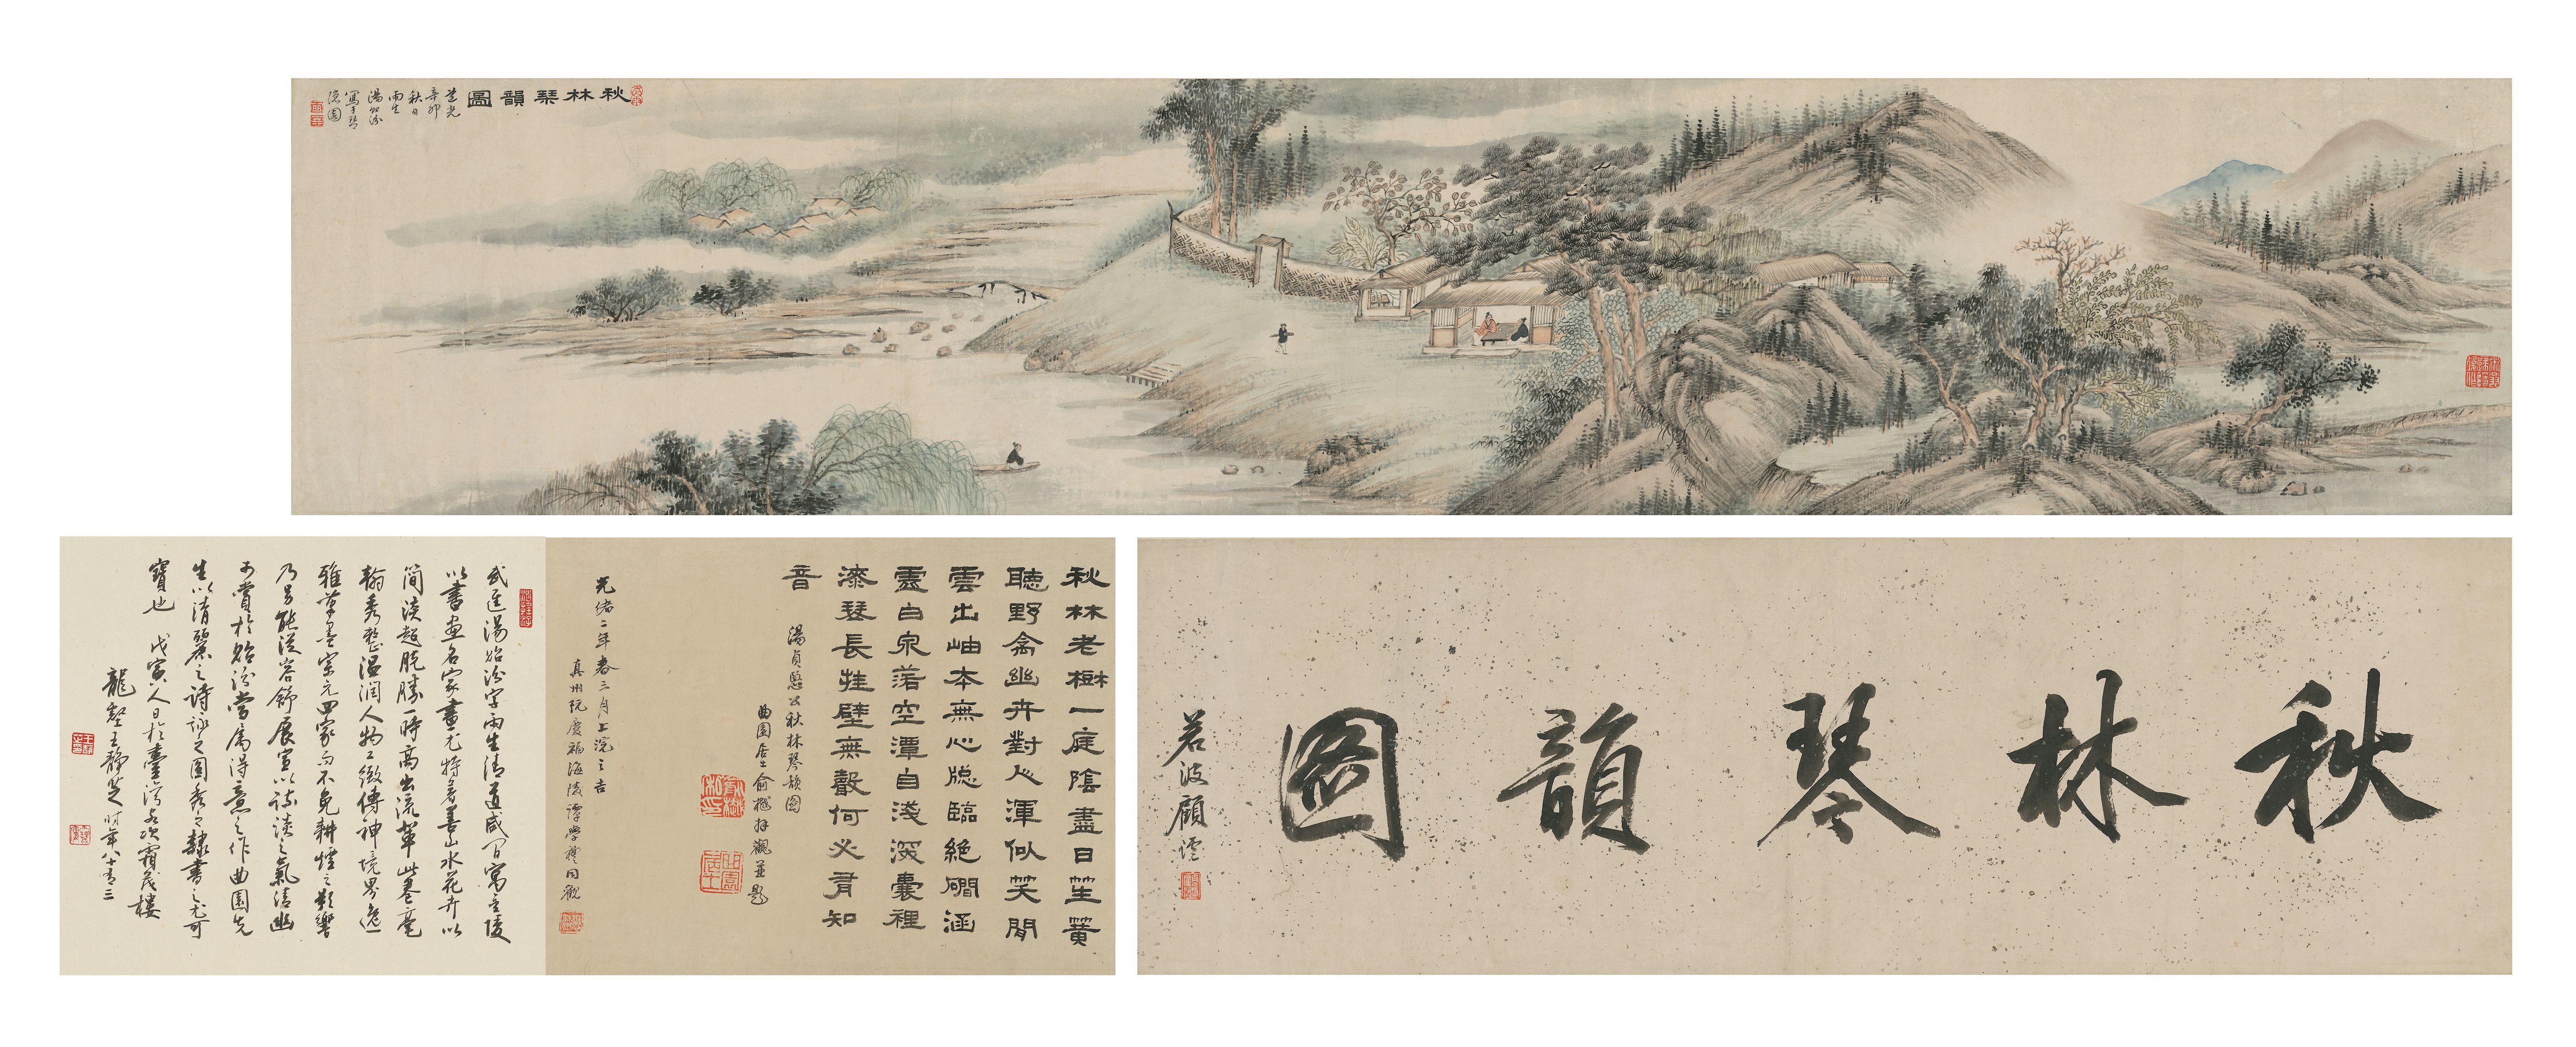 秋林琴韻圖
道光
辛卯
秋日
雨生
湯貽汾
寫于琴
隱園
秋林琴韻圖
若波顧澐
秋林老樹一庭陰盡日笙簧
聽野禽幽卉對人渾似笑閒
雲出岫本無心隐臨絕磵涵
虛白泉落空潭自淺深囊裡
漆琴長挂壁無聲何必有知
音
湯貞愍公秋林琴韻圖
曲園居士俞樾拜觀並題
光緒二年春三月上浣之吉
真州阮慶福海陵譚學禮同觀
武進湯貽汾字雨生清道咸間寓金陵
以書畫名家畫尤特名善山水花卉以
簡淡超脫勝一時高出流輩此卷毫
翰秀整溫潤人物工緻傳神境界逸
雅筆墨宗元四家而不免耕煙之影響
乃另能從容舒展宣以疏淡之氣清幽
可賞於貽汾當屬得意之作曲園先
生以清麗之詩詠之圖卷之隸書之尤可
寶也 戊寅人日於臺灣名次霜茂樓
龍壑王靜芝時年八十有三